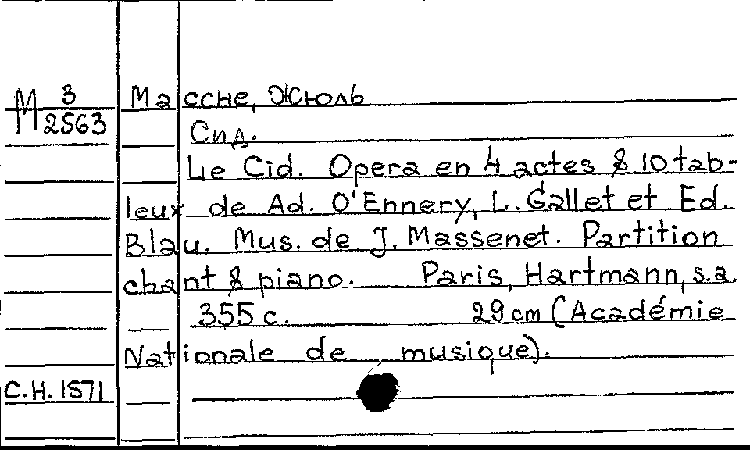 М 3/2563
Массне, Жюль
Сид.
Le Cid. Opera en 4 actes & 10 tab-
leux de Ad. O'Ennery, L. Gallet et Ed.
Blau. Mus. de J. Massenet. Partition
chant & piano. Paris, Hartmann, s.a.
355 с. 29 cm (Académie
Nationale de musique).
С.Н. 1571